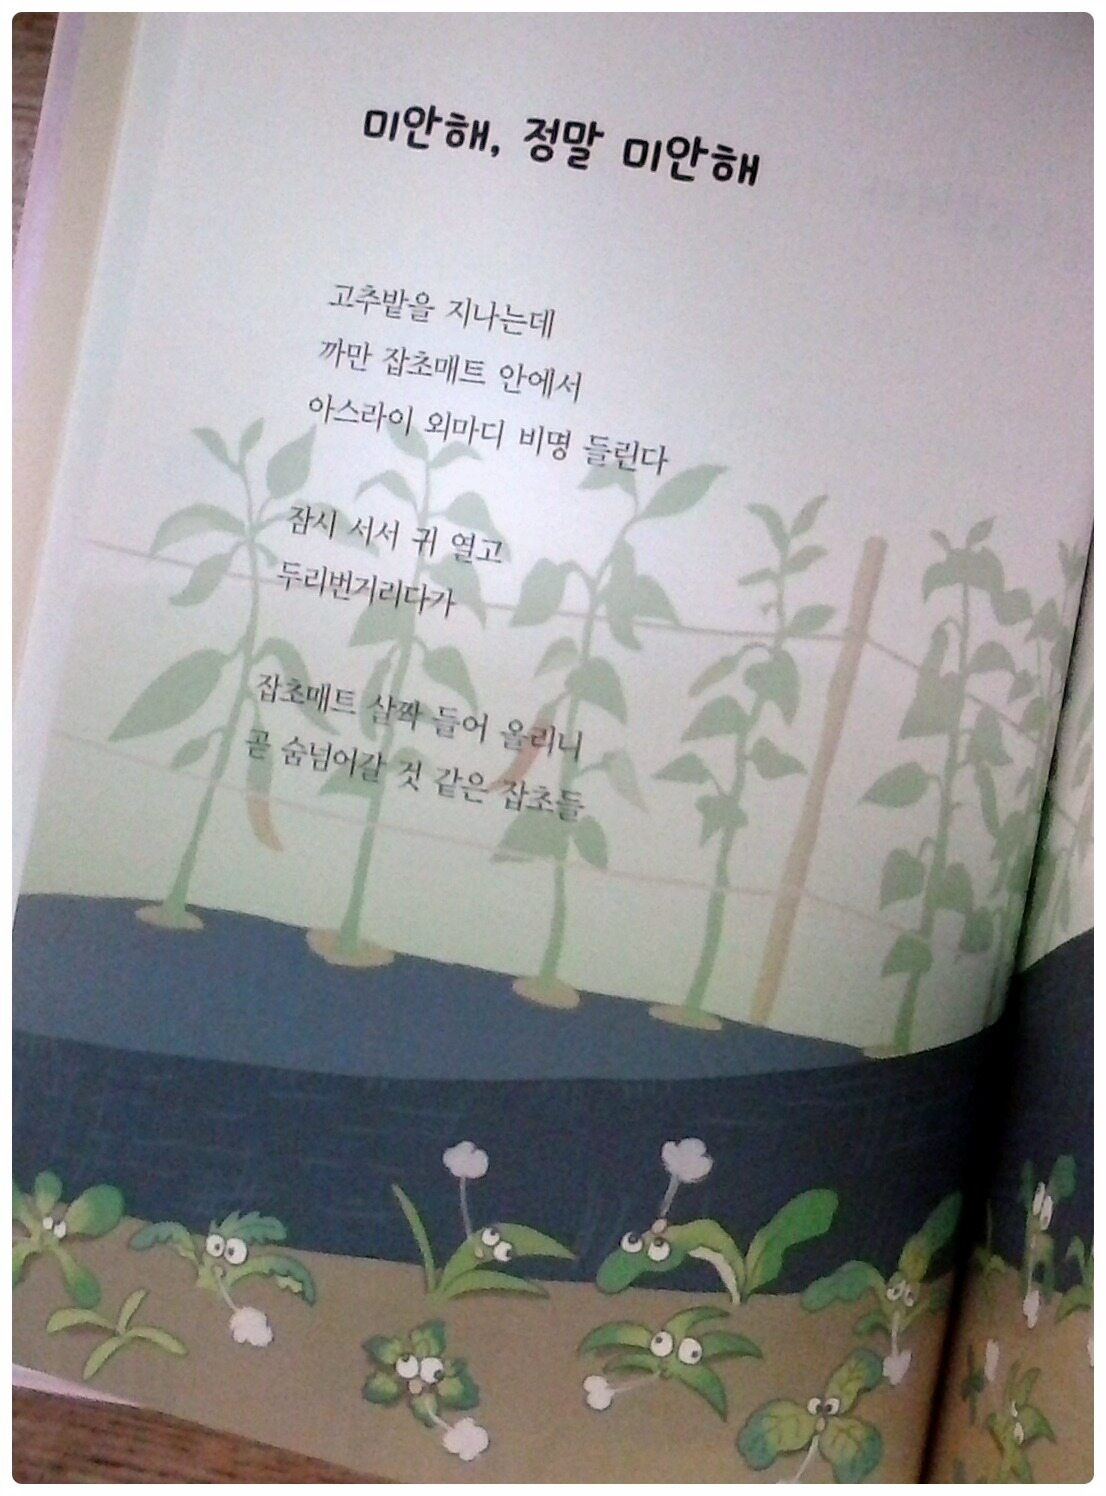 미안해, 정말 미안해
고추밭을 지나는데
까만 잡초매트 안에서
아스라이 외마디 비명 들린다
잠시 서서 귀 열고
두리번거리다가
잡초매트 살짝 들어 올리니
곧 숨넘어갈 것 같은 잡초들